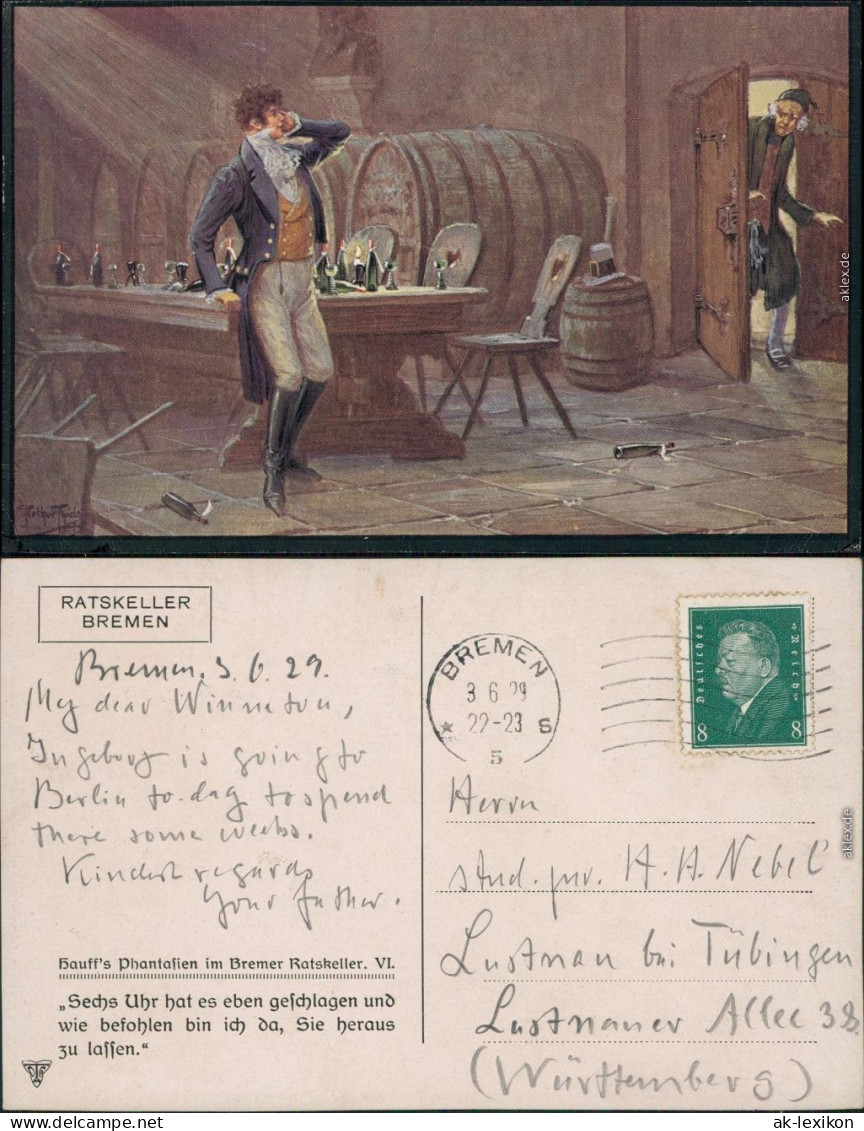 Arthur Thiele
aklex.de
RATSKELLER
BREMEN
Bremen, 3. 6. 29.
My dear Winnetou,
Ingeborg is going to
Berlin to-day to spend
there some weeks.
Kindest regards
Your father.
Hauff's Phantasien im Bremer Ratskeller. VI.
„Sechs Uhr hat es eben geschlagen und
wie befohlen bin ich da, Sie heraus
zu lassen.“
BREMEN
3 6 29
* 22-23 S
5
Deutsches Reich
8 8
Herrn
stud. jur. H. H. Nebel
Lustnau bei Tübingen
Lustnauer Allee 38.
(Württemberg)
aklex.de
ak-lexikon